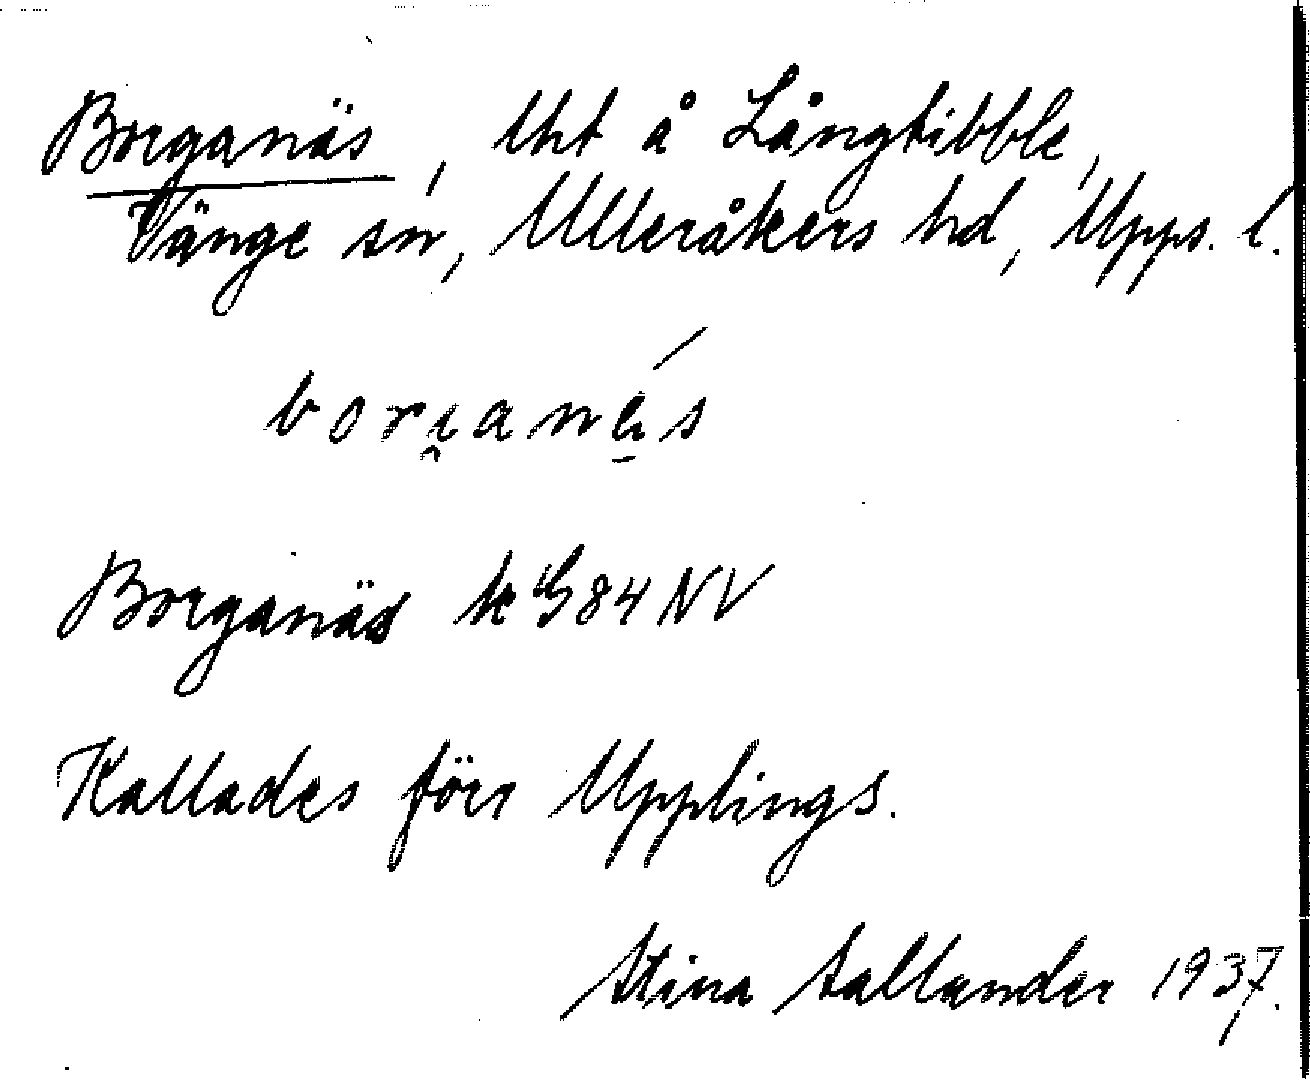 Borganäs, lht å Långtibble,
Vänge sn, Ulleråkers hd, Upps. l.
Borganäs k G 84 NV
Kallades förr Upplings.
Stina Sallander 1937.